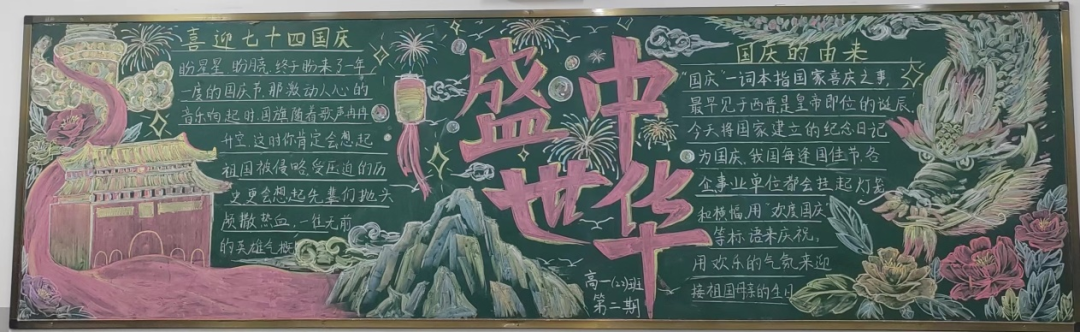 喜迎七十四国庆
盼星星 盼月亮,终于盼来了一年
一度的国庆节,那激动人心的
音乐响起时,国旗随着歌声冉冉
升空,这时你肯定会想起
祖国被侵略,受压迫的历
史,更会想起先辈们抛头
颅撒热血,一往无前
的英雄气概
盛世
中华
高一(2)班
第二期
国庆的由来
“国庆”一词本指国家喜庆之事,
最早见于西晋是皇帝即位的诞辰,
今天将国家建立的纪念日记
为国庆,我国每逢国佳节,各
企事业单位都会挂起灯笼
和横幅,用“欢度国庆”
等标语来庆祝,
用欢乐的气氛来迎
接祖国母亲的生日